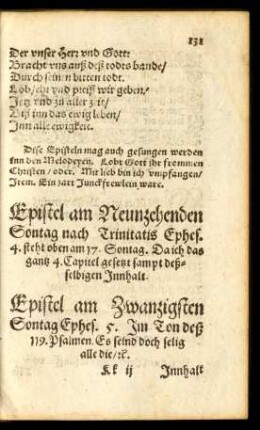 131
Der vnser Herr vnd Gott:
Bracht vns auß deß todts bande/
Durch seinen bittern todt.
Lob/ehr vnd preiß wir geben/
Jetz vnd zu aller zeit/
Biß inn das ewig leben/
Inn alle ewigkeit.
Dise Episteln mag auch gesungen werden
inn den Melodeyen. Lobt Gott ihr frommen
Christen/ oder. Mit lieb bin ich vmpfangen/
Item. Ein zart Junckfrewlein ware.
Epistel am Neunzehenden
Sontag nach Trinitatis Ephes.
4. steht oben am 17. Sontag. Da ich das
gantz 4. Capitel gesetzt sampt deß-
selbigen Innhalt.
Epistel am Zwanzigsten
Sontag Ephes. 5. Im Ton deß
119. Psalmen. Es seind doch selig
alle die/ꝛc.
Kk ij Innhalt